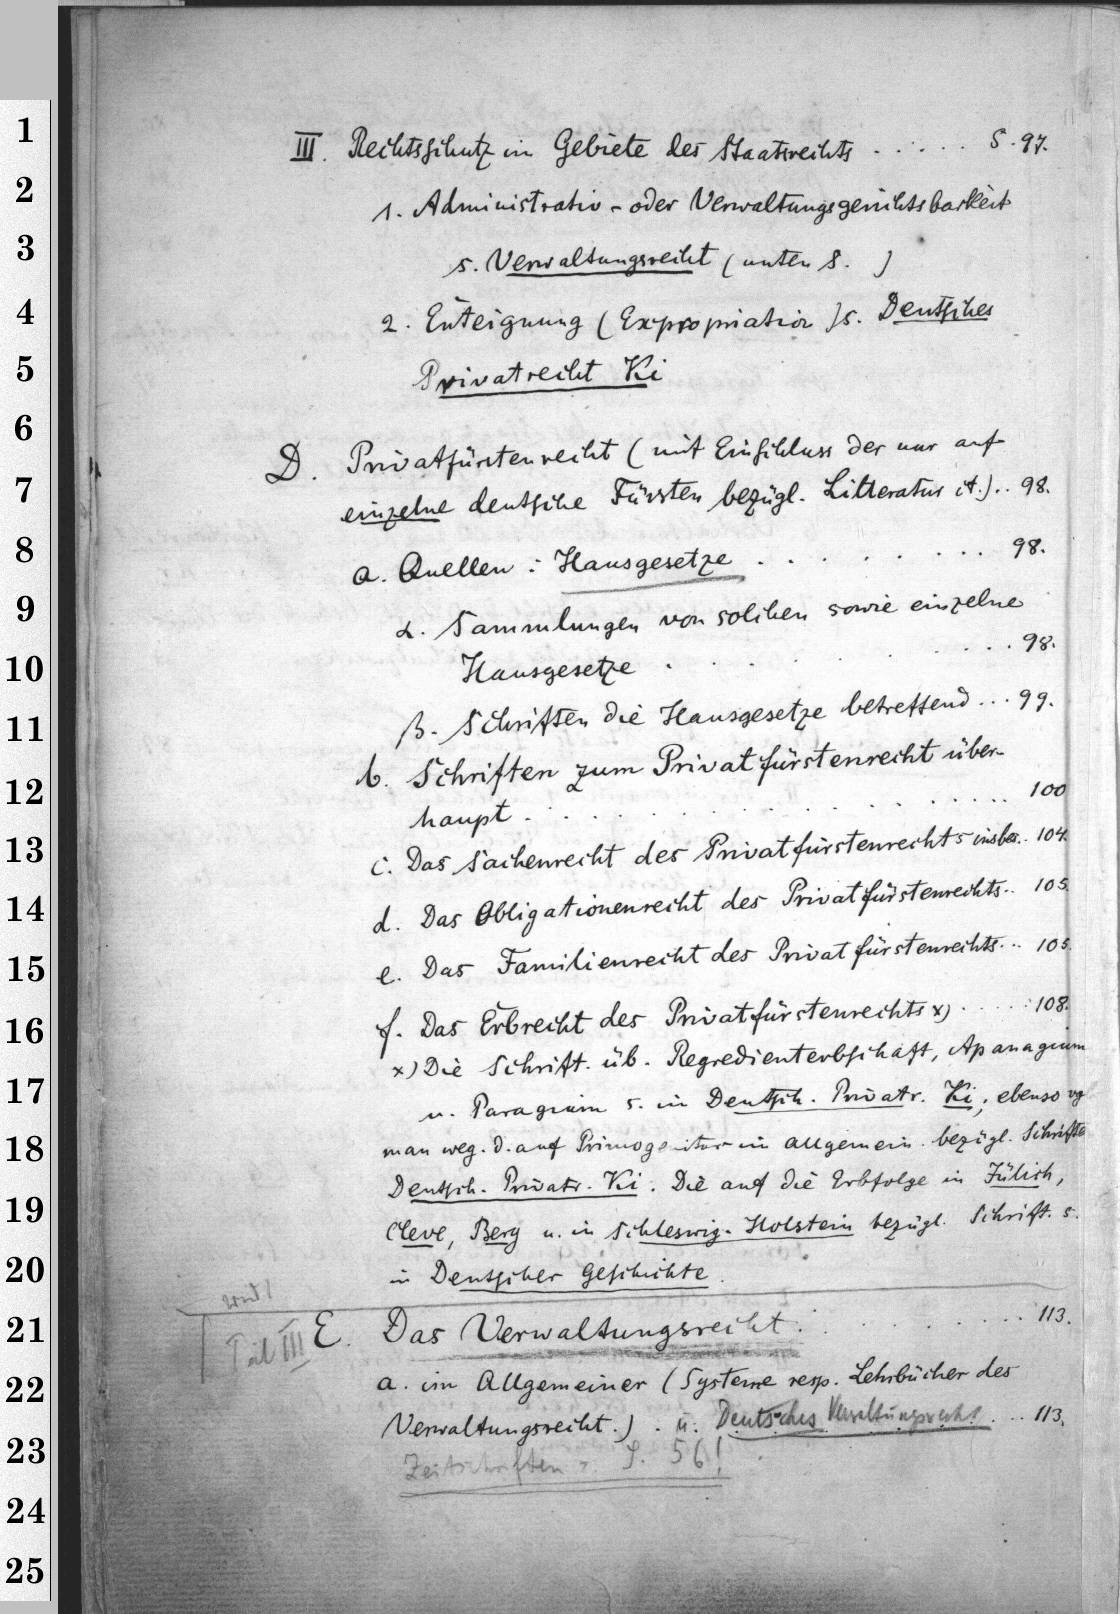 1
2
3
4
5
6
7
8
9
10
11
12
13
14
15
16
17
18
19
20
21
22
23
24
25
III. Rechtsschutz im Gebiete des Staatsrechts . . . . . . S. 97.
1. Administrativ- oder Verwaltungsgerichtsbarkeit
s. Verwaltungsrecht (unten S. )
2. Enteignung (Expropriation) s. Deutsches
Privatrecht Ki
D. Privatfürstenrecht (mit Einschluss der nur auf
einzelne deutsche Fürsten bezügl. Litteratur etc.) .. 98.
a. Quellen: Hausgesetze . . . . . . . . . 98.
α. Sammlungen von solchen sowie einzelne
Hausgesetze . . . . . . . . . 98.
β. Schriften die Hausgesetze betreffend ... 99.
b. Schriften zum Privatfürstenrecht über-
haupt . . . . . . . . . . . . 100
c. Das Sachenrecht des Privatfürstenrechts insbes. . 104.
d. Das Obligationenrecht des Privatfürstenrechts .. 105.
e. Das Familienrecht des Privatfürstenrechts ... 105.
f. Das Erbrecht des Privatfürstenrechts x) . . . . . 108.
x) Die Schrift. üb. Regredienterbschaft, Apanagium
u. Paragium s. in Deutsch. Privatr. Ki, ebenso vgl
man weg. d. auf Primogenitur im allgemein. bezügl. Schriften
Deutsch. Privatr. Ki. Die auf die Erbfolge in Jülich,
Cleve, Berg u. in Schleswig-Holstein bezügl. Schrift. s.
in Deutscher Geschichte.
Teil III E. Das Verwaltungsrecht . . . . . . . . . . 113.
a. im Allgemeinen (Systeme resp. Lehrbücher des
Verwaltungsrecht.) . u. Deutsches Verwaltungsrecht . . . 113.
Zeitschriften S. 56!